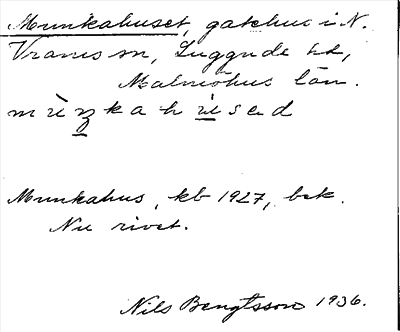 Munkahuset, gatehus i N.
Vrams sn, Luggude hd,
Malmöhus län.
mùŋkahu̱sed
Munkahus, kb 1927, bek.
Nu rivet.
Nils Bengtsson 1936.